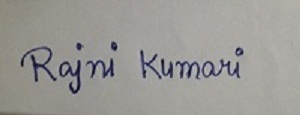 Rajni Kumari